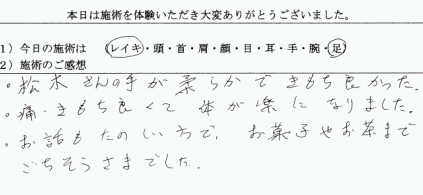 本日は施術を体験いただき大変ありがとうございました。
1）今日の施術は （レイキ・頭・首・肩・顔・目・耳・手・腕・足）
2）施術のご感想
・松木さんの手が柔らかできもち良かった。
・痛・きもち良くて 体が楽になりました。
・お話もたのしい方で、お菓子やお茶まで
ごちそうさまでした。